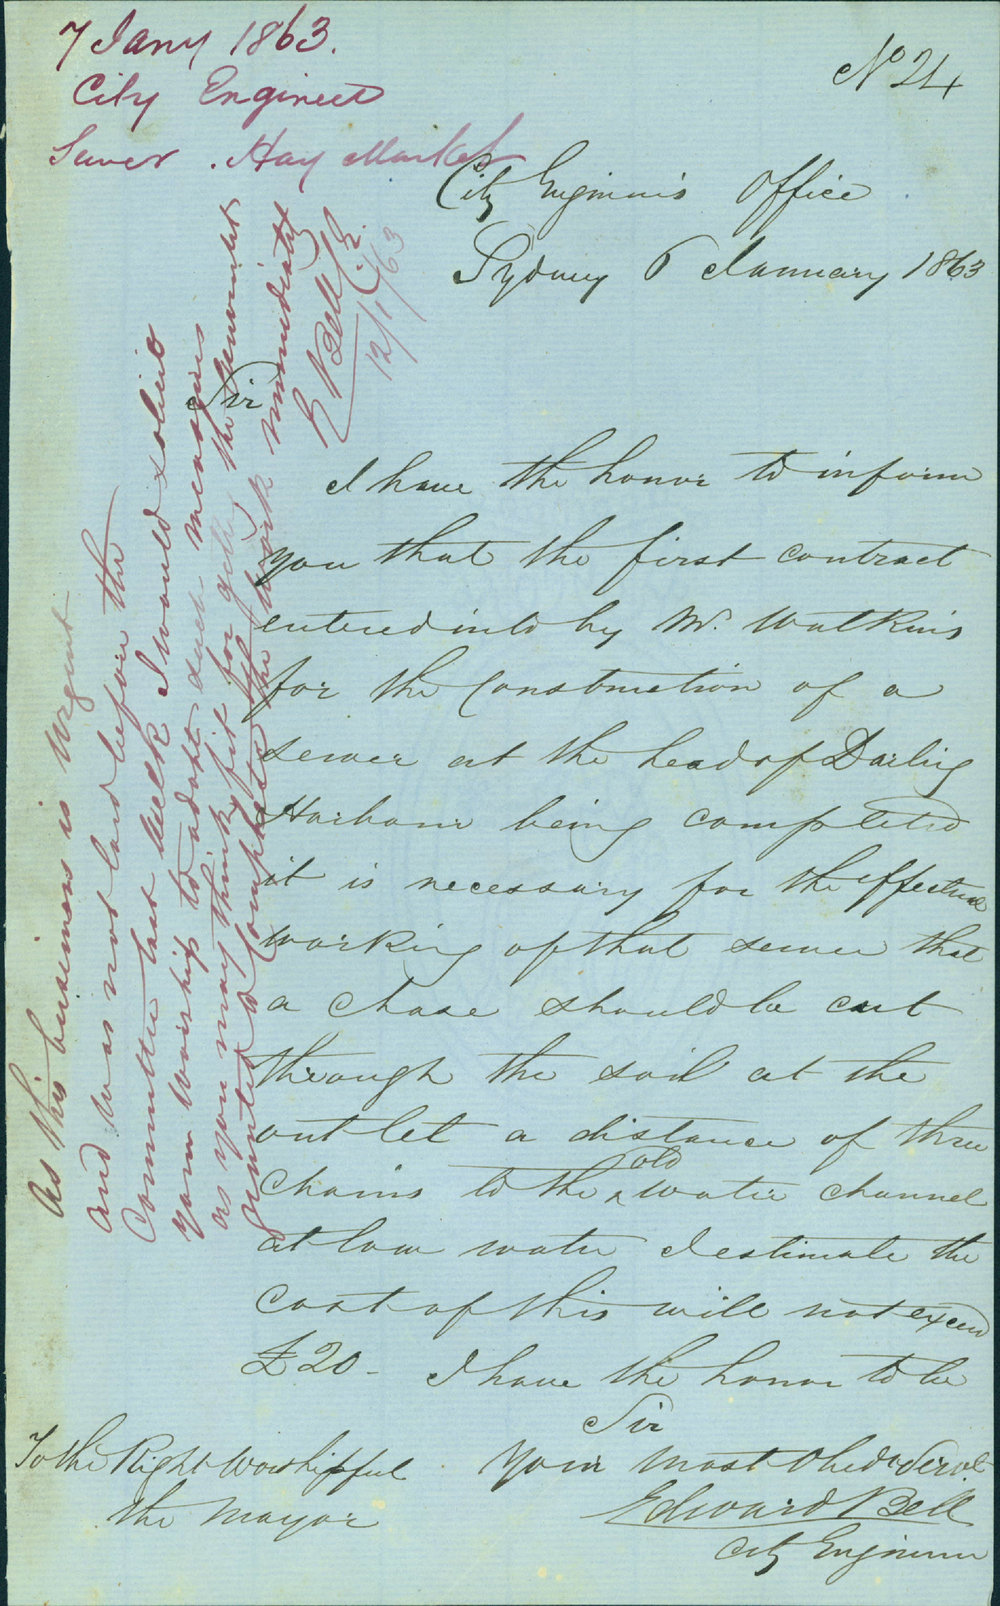 7 Jany 1863.
City Engineer
Sewer . Hay Market
No 24
City Engineer's Office
Sydney 6 January 1863
Sir
I have the honor to inform
you that the first contract
entered into by Mr. Watkins
for the Construction of a
sewer at the head of Darling
Harbour being completed
it is necessary for the effectual
working of that sewer that
a chase should be cut
through the soil at the
outlet a distance of three
chains to the old water channel
at low water I estimate the
cost of this will not exceed
£20 - I have the honor to be
Sir
Your most Obed Servt
Edward Bell
City Engineer
To the Right Worshipful
the Mayor
As this business is urgent
and was not laid before the
Committee last Week I would solicit
your Worship to adopt such measures
as you may think fit for getting the
granted to Complete the Work immediately
E Bell C.E.
12/1/63